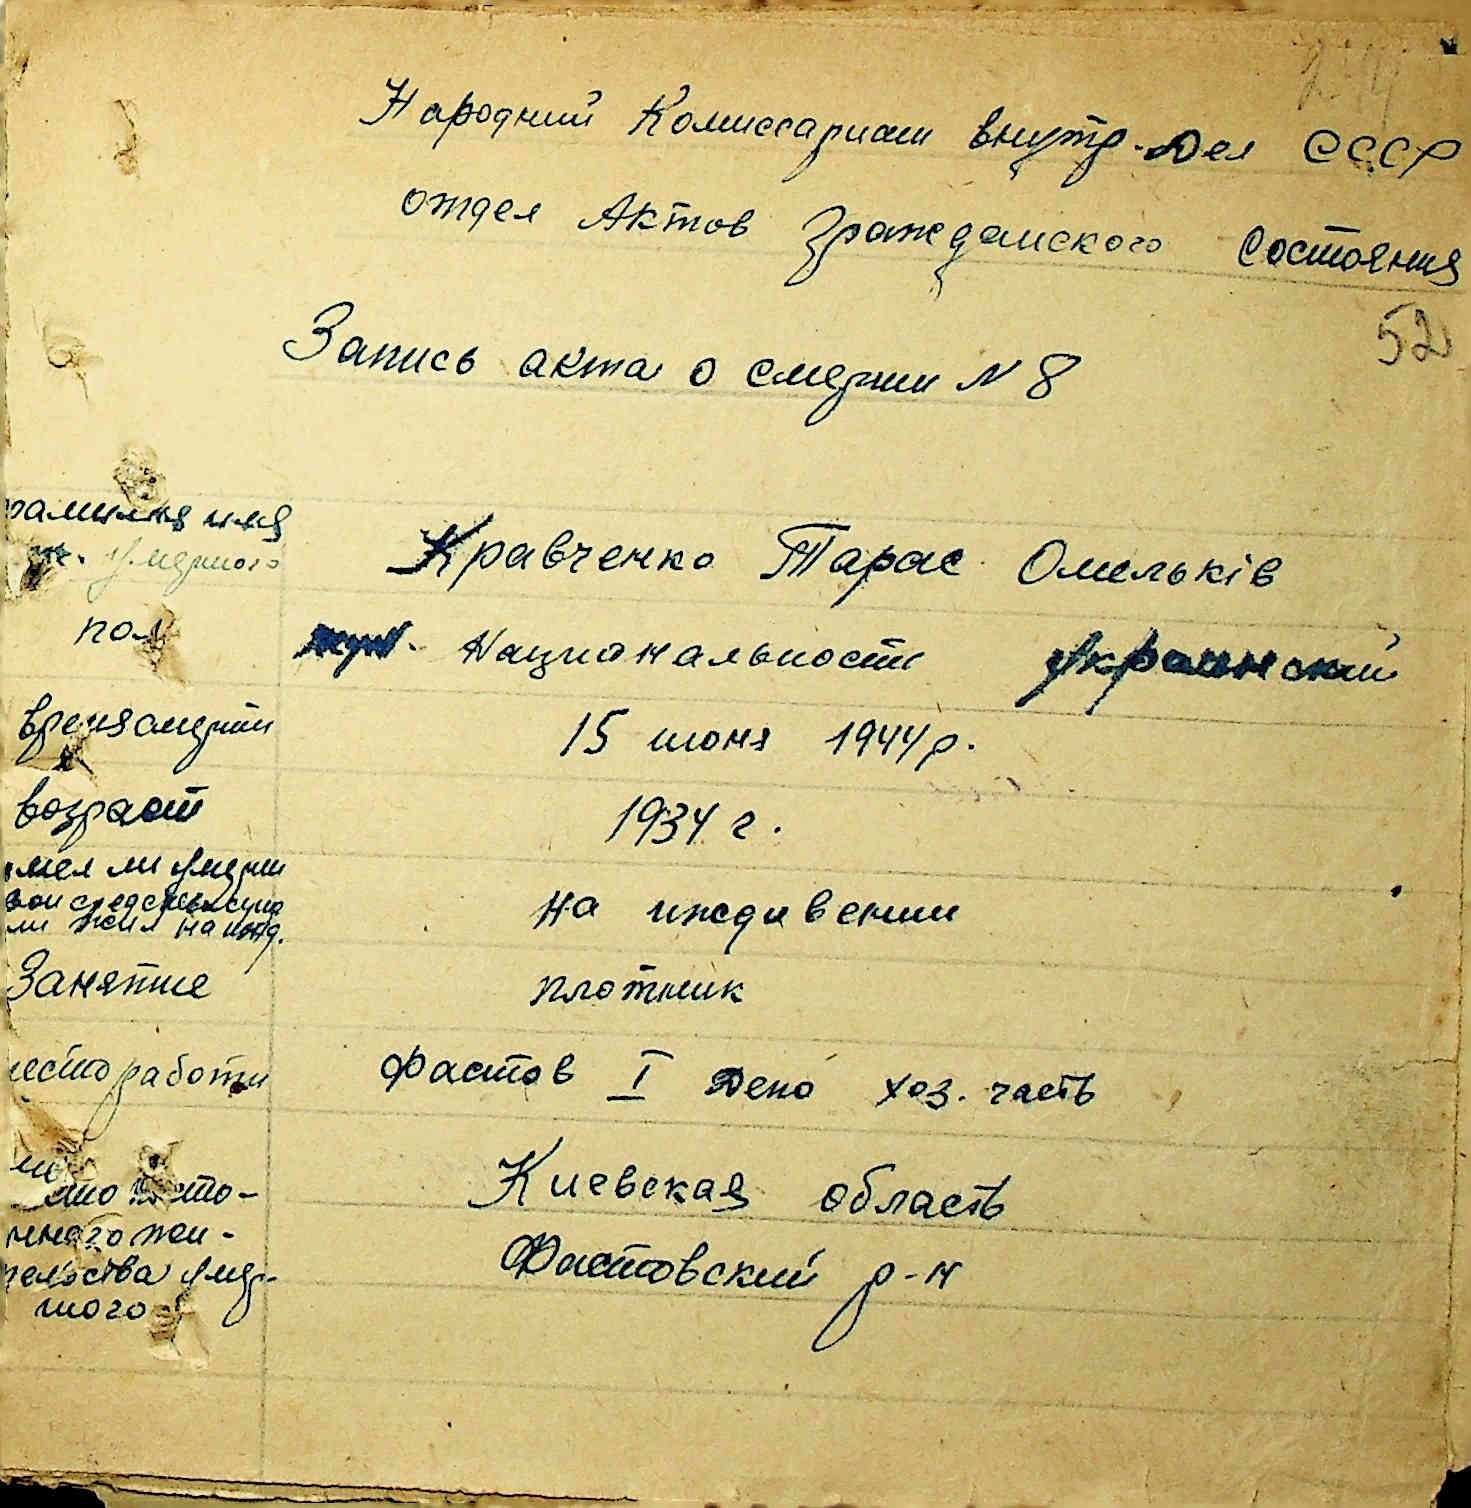 Народний Комиссариат внутр. Дел СССР
отдел Актов Гражданского Состояния
52
Запись акта о смерти N 8
фамилия имя
умершого
Кравченко Тарас Омельків
пол муж. Национальности Украинский
время смерти 15 июня 1944 р.
возраст 1934 г.
имел ли умерш
свои средства сущ
или жил на ижд.
на иждивении
Занятие плотник
место работи Фастов I Депо хоз. часть
место посто-
янного жи-
тельства умер-
шого
Киевская область
Фастовский р-н